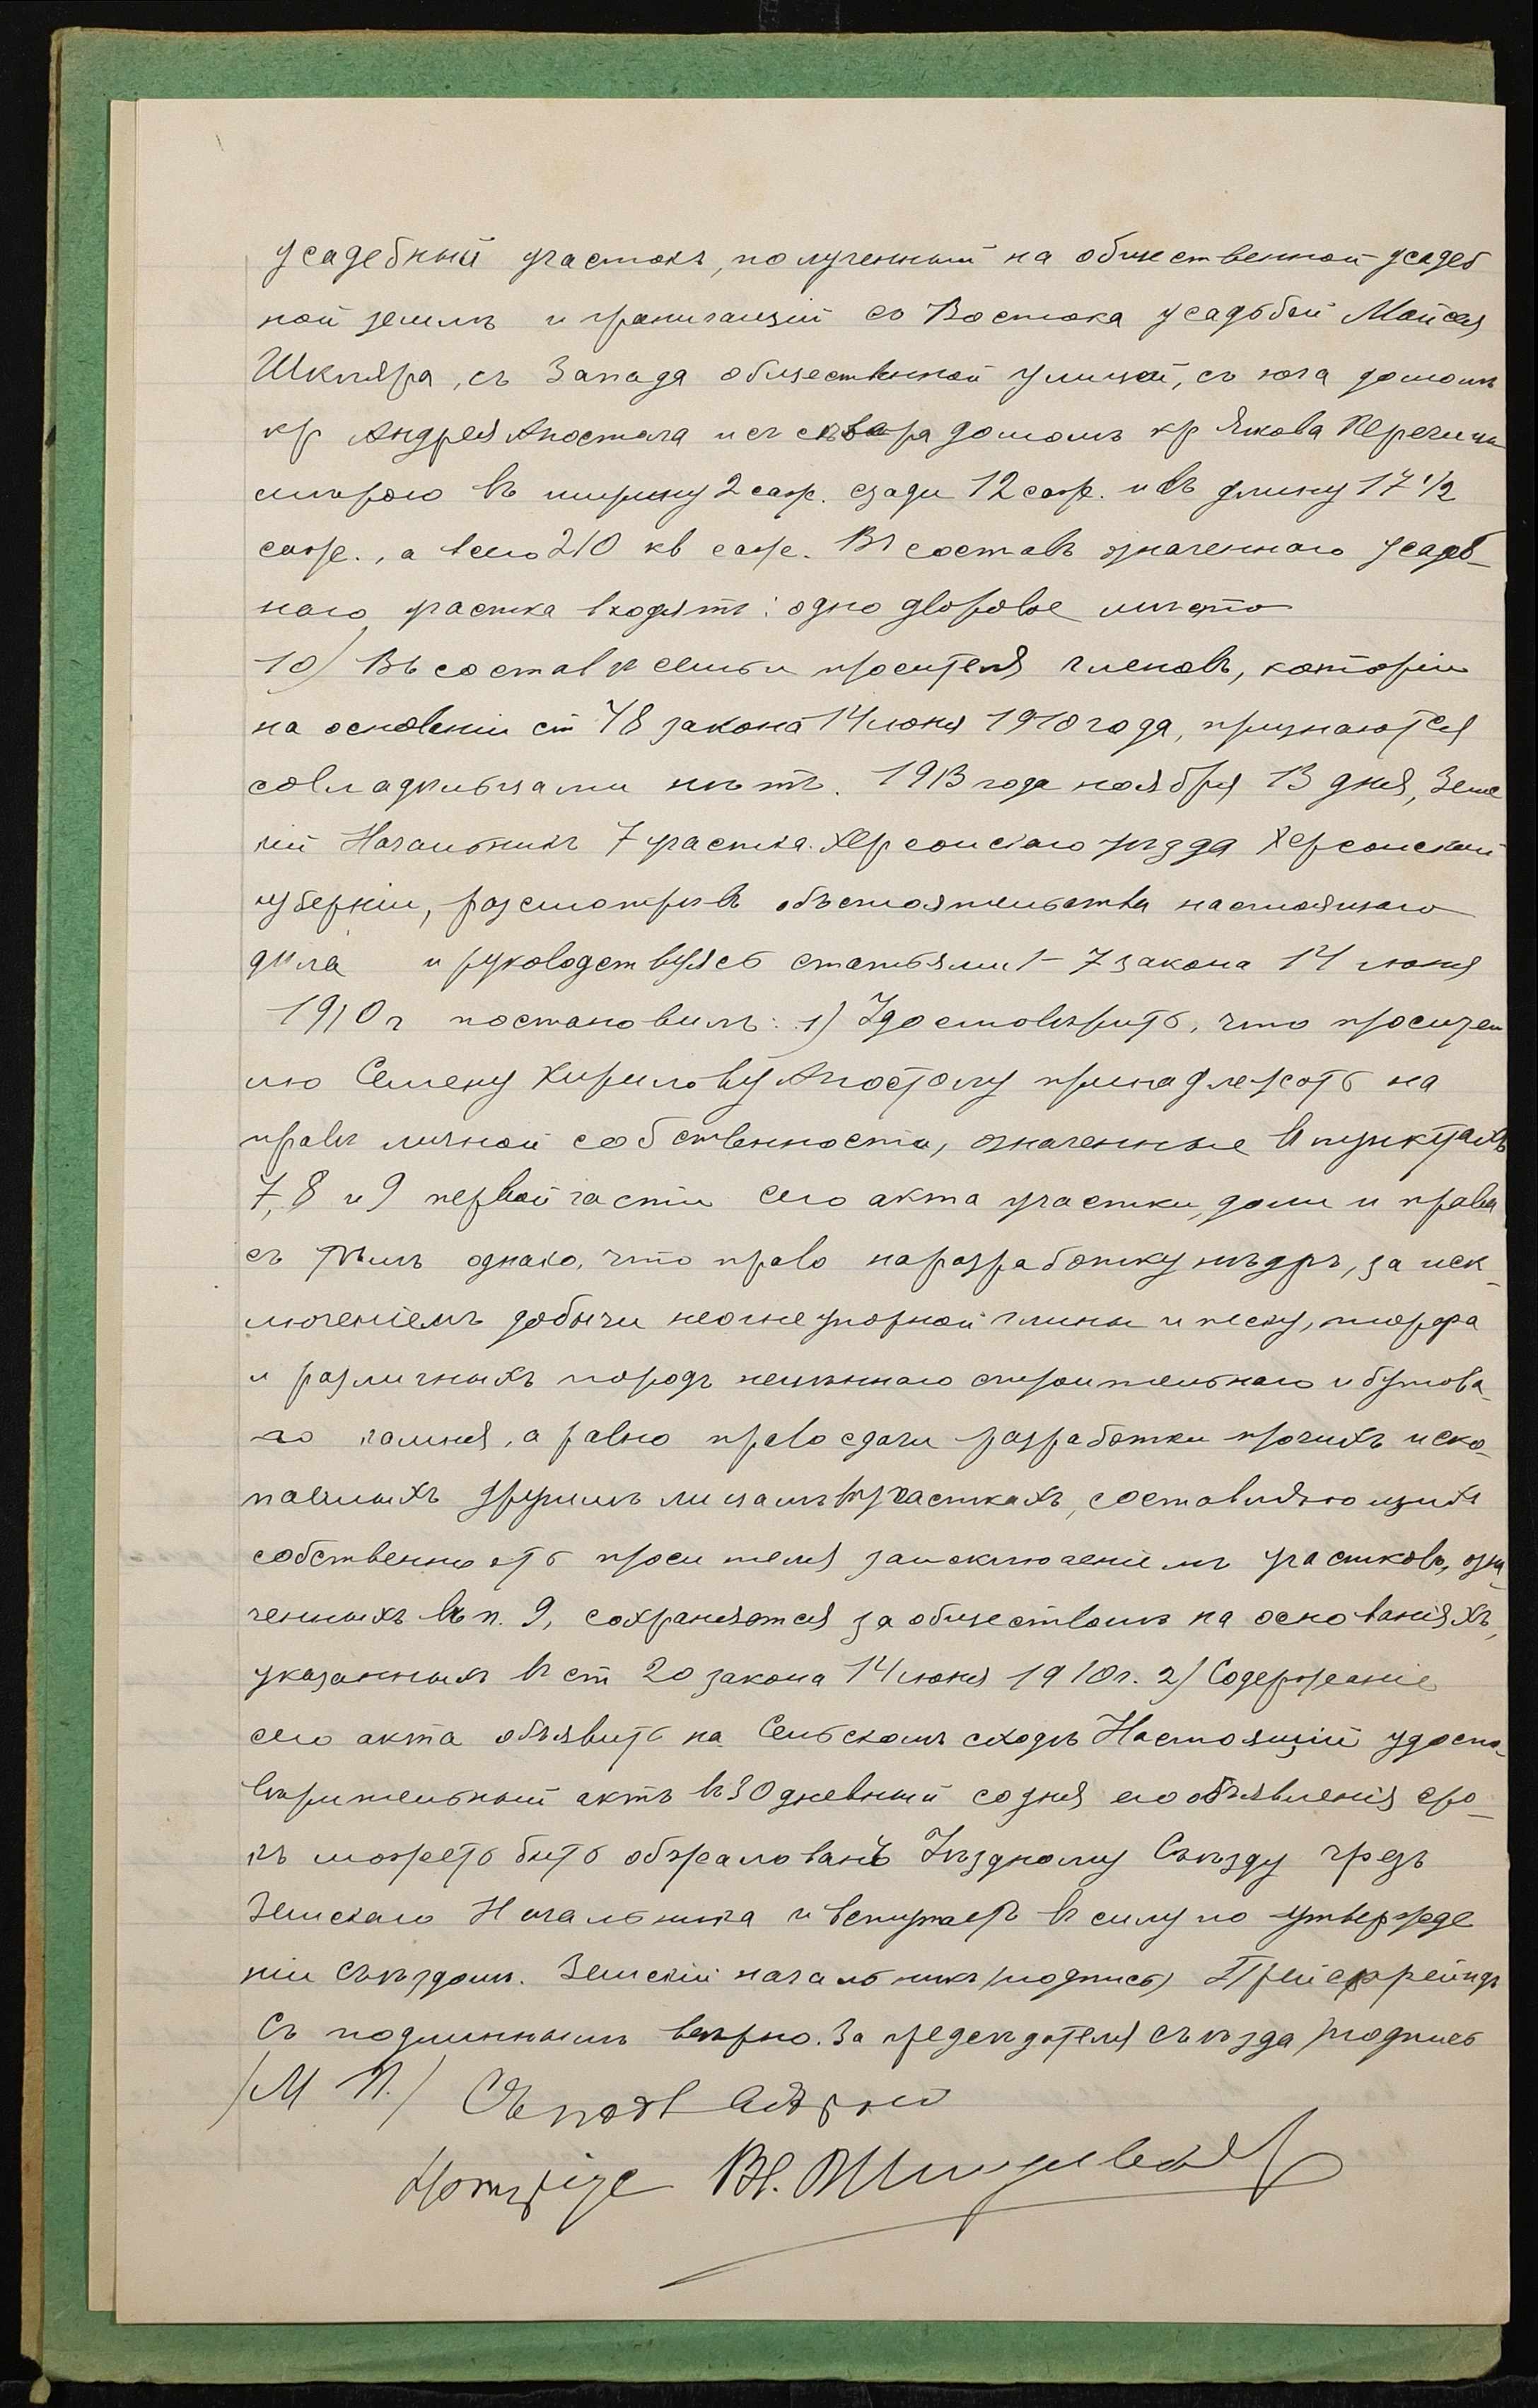 усадебный участокъ, полученный на общественной усадеб
ной землѣ и граничащій со Востока усадьбой Мойсея
Шкляра, съ Запада общественной улицей, съ юга домомъ
кр Андрея Апостола и съ сѣвера домомъ кр Якова
мѣрою въ ширину 2 саж. сзади 12 саж. и въ длину 17 1/2
саж., а всего 210 кв саж. Въ составъ означеннаго усадеб-
наго участка входятъ: одно дворовое мѣсто
10) Въ составѣ семьи просителя членовъ, которіи
на основеніи ст 48 закона 14 июня 1910 года, признаются
совладѣльцами нѣтъ. 1913 года ноября 13 дня, Земс
кій Начальникъ 7 участка Херсонскаго уѣзда Херсонской
губерніи, разсмотрѣвъ обстоятельства настоящаго
дѣла и руководствуясь статьями 1-7 закона 14 июня
1910 г постановилъ: 1) Удостовѣрить, что просите
лю Семену Кирилову Апостолу принадлежатъ на
правѣ личной собственности, означенные в пунктахъ
7, 8 и 9 первой части сего акта участки, доли и права
съ тѣмъ однако, что право на разработку нѣдръ, за иск-
люченіемъ добычи неогнеупорной глины и песку, торфа
и различныхъ породъ неценнаго строительнаго и бутова-
го камня, а равно право сдачи разработки прочихъ иско-
паемыхъ другимъ лицамъ въ участкахъ, составляющихъ
собственность просителя за исключеніемъ участковъ, озна-
ченныхъ въ п. 9, сохраняются за обществомъ на основаніяхъ,
указанныхъ въ ст 20 закона 14 июня 1910 г. 2) Содержаніе
сего акта объявить на Сельскомъ сходѣ Настоящій удосто-
вѣрительный актъ въ 30 дневный со дня его объявленія сро-
къ можетъ быть обжалованъ Уѣздному Съѣзду чрезъ
Земскаго Начальника и вступаетъ въ силу по утвержде
ніи Съѣздомъ. Земскій начальникъ (подпись) Прейсфрейндъ
Съ подлиннымъ вѣрно. За предсѣдателя съѣзда (подпись
(М П.)
Нотаріусъ